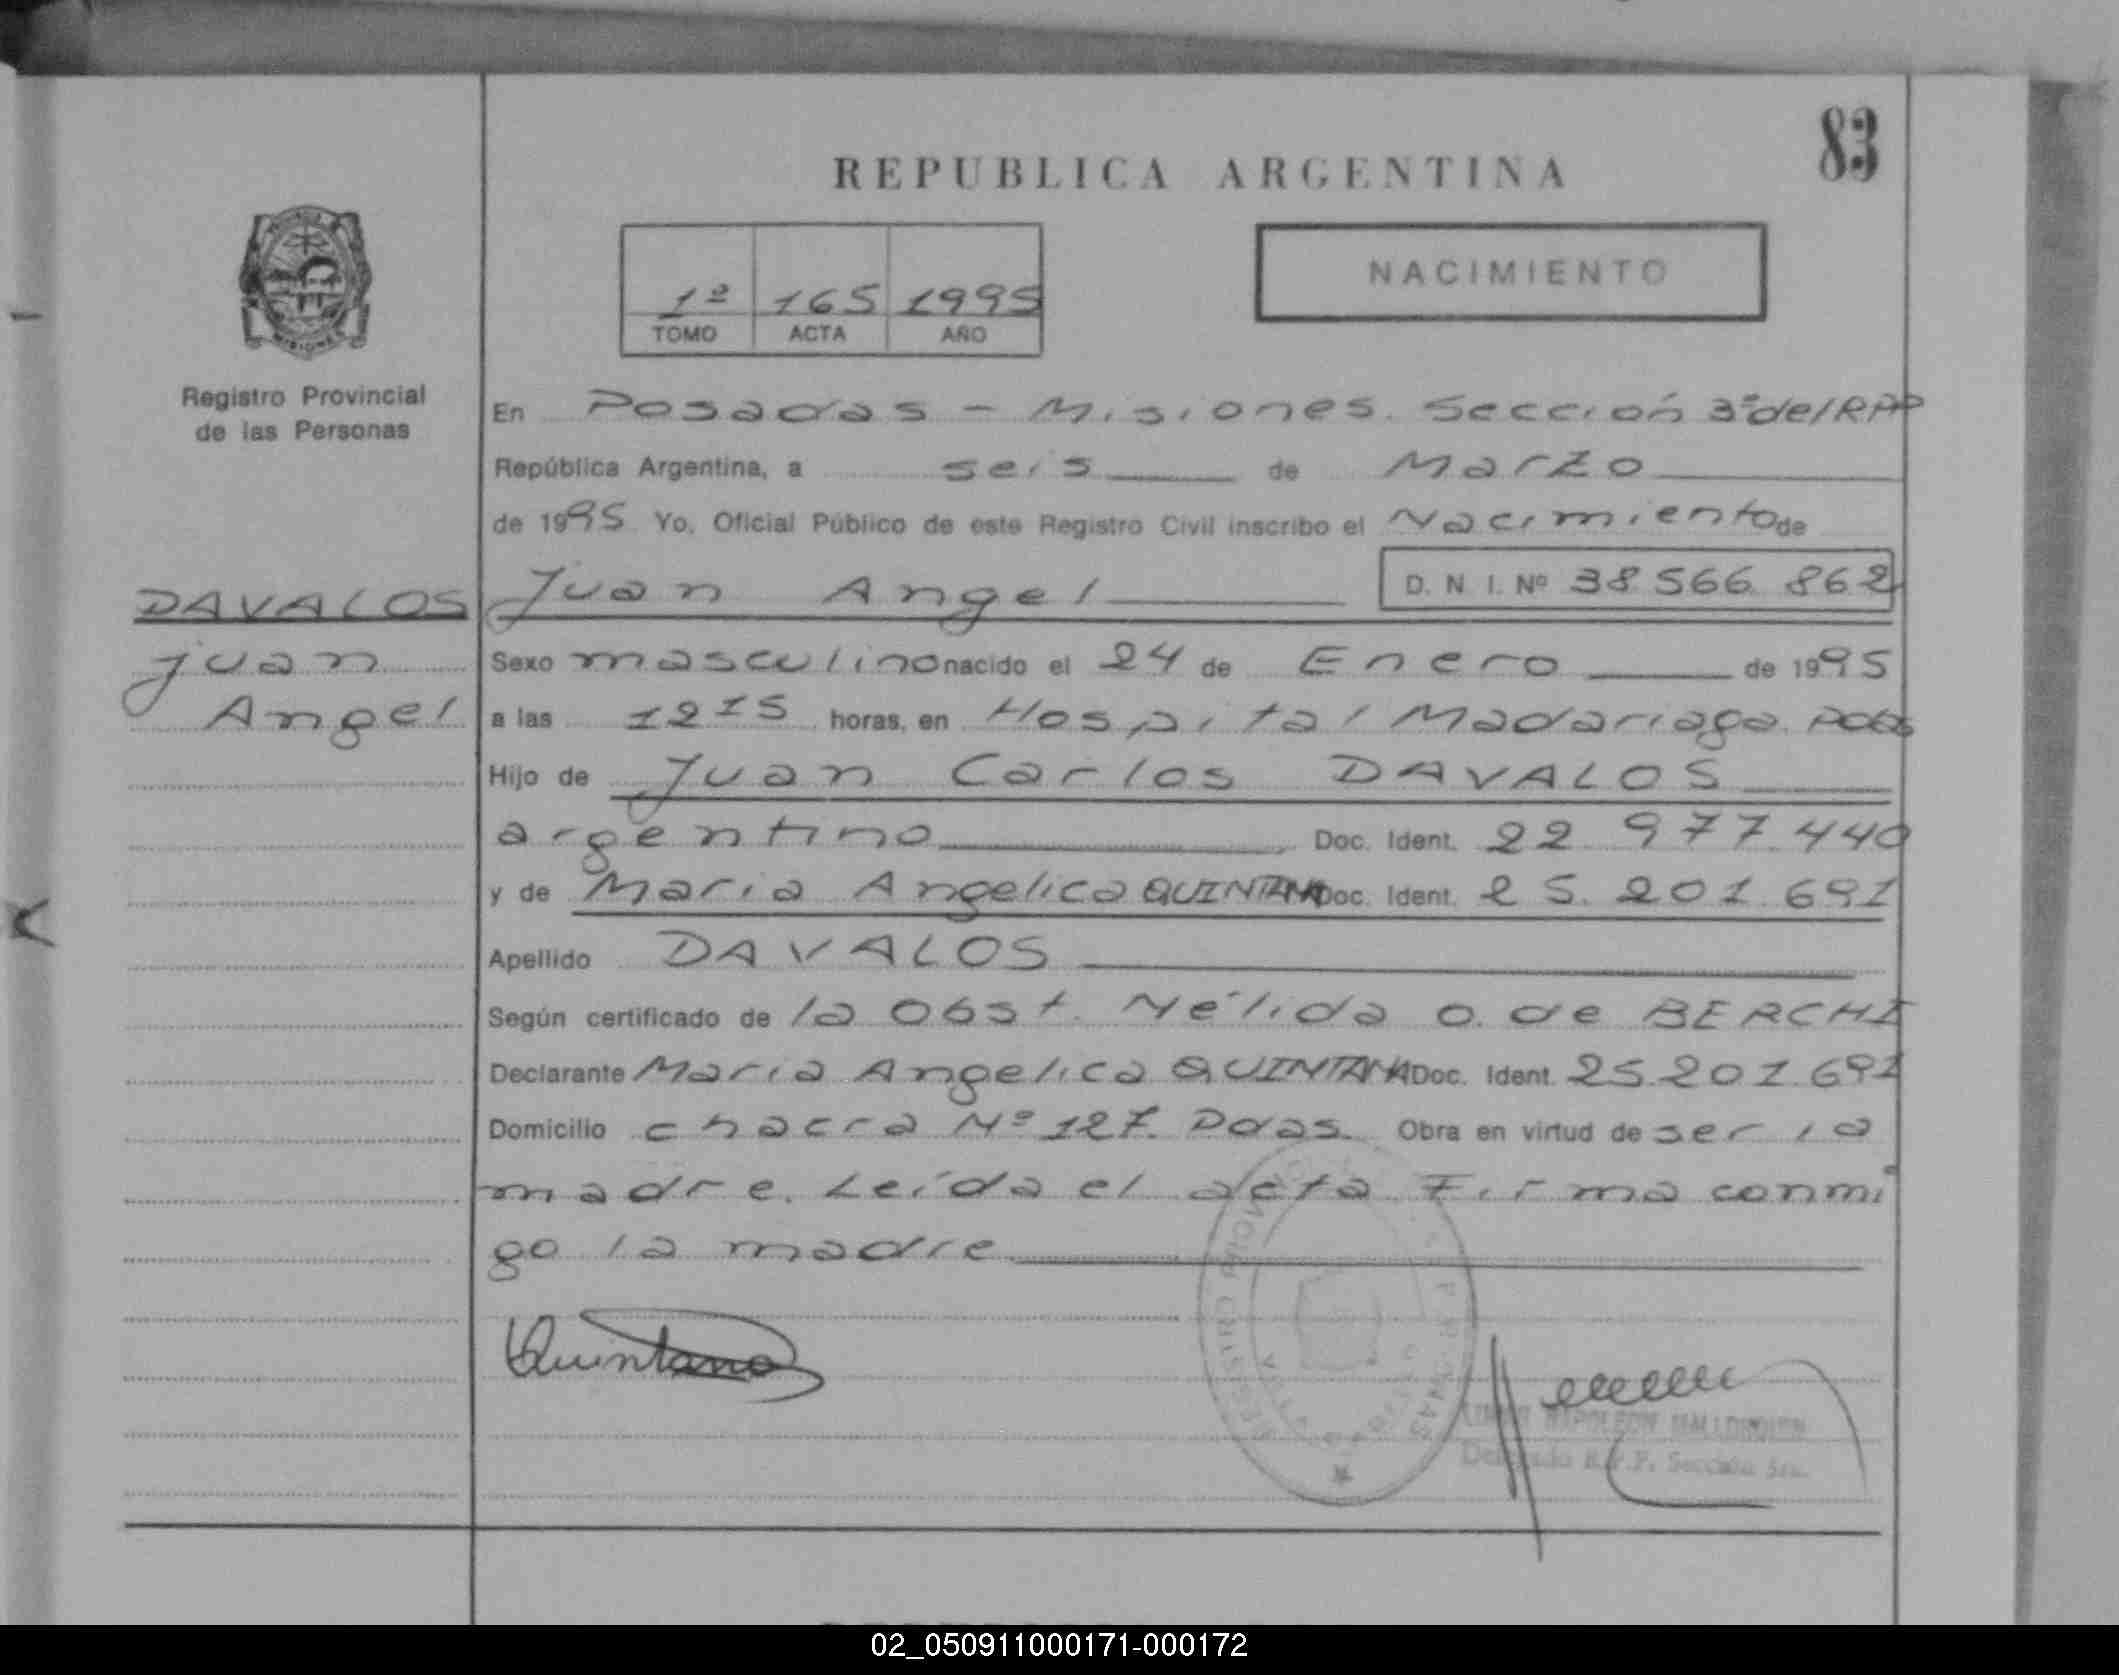 83
REPUBLICA ARGENTINA
1º 165 1995
TOMO ACTA AÑO
NACIMIENTO
MISIONES
Registro Provincial
de las Personas
En Posadas - Misiones. Sección 3ª del RPP
República Argentina, a seis de Marzo
de 1995 Yo, Oficial Público de este Registro Civil inscribo el Nacimiento de
DAVALOS Juan Angel D. N. I. Nº 38 566 862
Juan Sexo masculino nacido el 24 de Enero de 1995
Angel a las 12 15 horas, en Hospital Madariaga. Pdas
Hijo de Juan Carlos DAVALOS
argentino Doc. Ident. 22 977.440
y de Maria Angelica QUINTANA Doc. Ident. 25.201.691
Apellido DAVALOS
Según certificado de la Obst. Nélida O. de BERCHI
Declarante Maria Angelica QUINTANA Doc. Ident. 25.201.691
Domicilio chacra Nº 127. Pdas. Obra en virtud de ser la
madre. Leída el acta Firma conmi
go la madre
Quintana
REGISTRO PROVINCIAL
NAPOLEON
Delegado R.P.P. Sección 3ra.
02_050911000171-000172